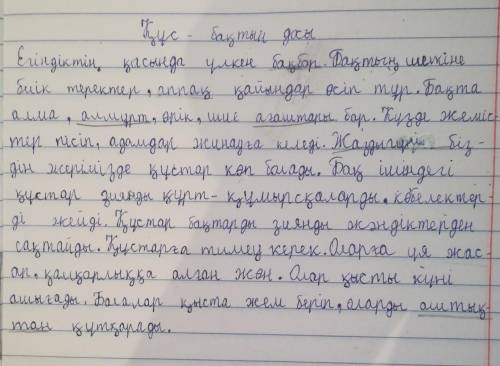 Құс - бақтың досы
Егіндіктің қасында үлкен бақ бар. Бақтың шетіне
биік теректер, аппақ қайыңдар өсіп тұр. Бақта
алма, алмұрт, өрік, шие ағаштары бар. Күзде жеміс-
тер пісіп, адамдар жинауға келеді. Жаздыгүні біз-
дің жерімізде құстар көп болады. Бақ ішіндегі
құстар зиянды құрт-құмырсқаларды, көбелектер-
ді жейді. Құстар бақтарды зиянды жәндіктерден
сақтайды. Құстарға тимеу керек. Оларға ұя жас-
ап, қамқорлыққа алған жөн. Олар қысты күні
ашығады. Балалар қыста жем беріп, оларды аштық-
тан құтқарады.